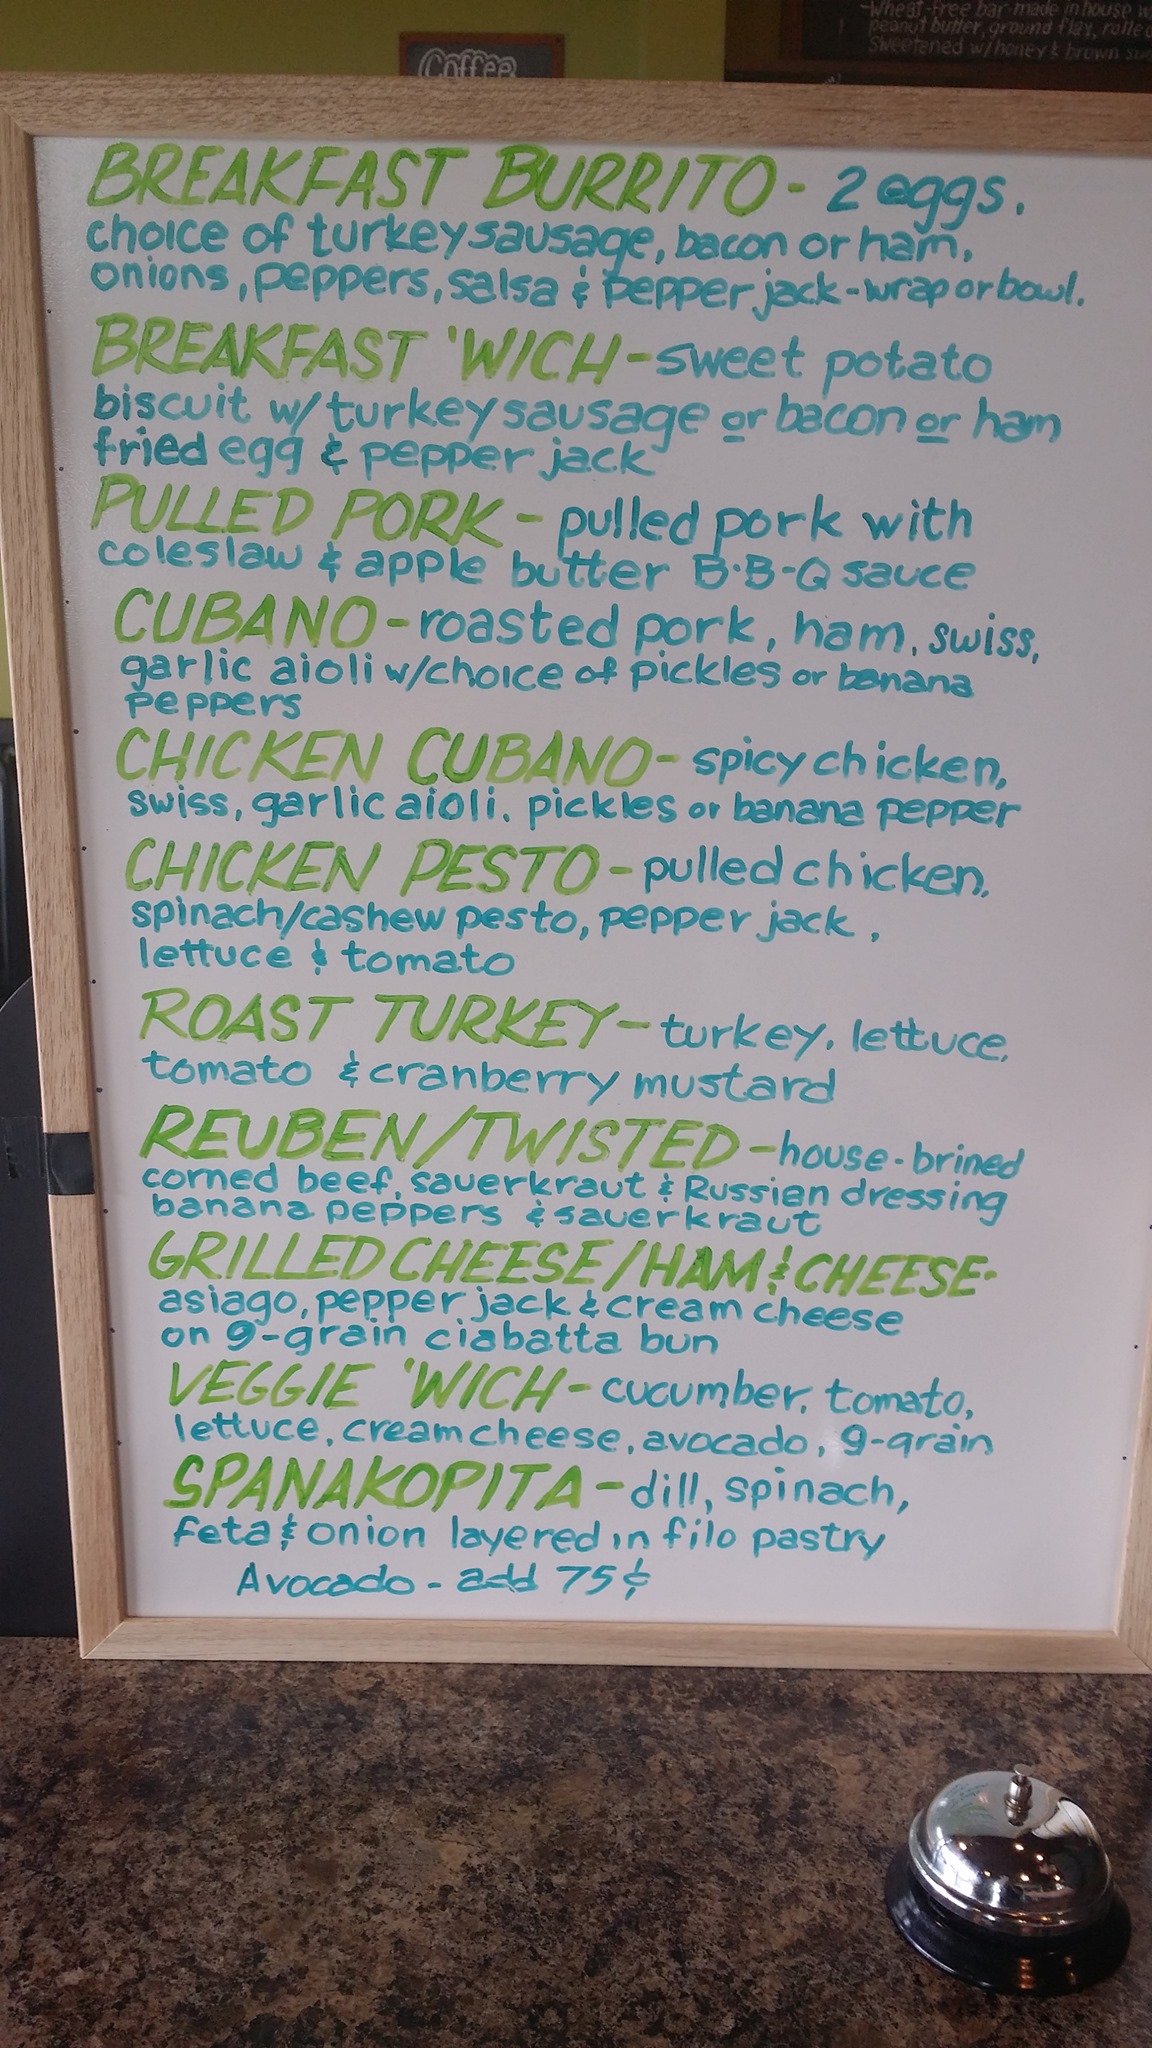 Coffee
-Wheat-free bar made in house w
peanut butter, ground flax, rolle
Sweetened w/honey & brown su
BREAKFAST BURRITO - 2 eggs.
choice of turkey sausage, bacon or ham,
onions, peppers, salsa & pepper jack - wrap or bowl.
BREAKFAST 'WICH - sweet potato
biscuit w/ turkey sausage or bacon or ham
fried egg & pepper jack
PULLED PORK - pulled pork with
coleslaw & apple butter B·B-Q sauce
CUBANO - roasted pork, ham, swiss,
garlic aioli w/choice of pickles or banana
peppers
CHICKEN CUBANO - spicy chicken,
swiss, garlic aioli. pickles or banana pepper
CHICKEN PESTO - pulled chicken,
spinach/cashew pesto, pepper jack,
lettuce & tomato
ROAST TURKEY - turkey. lettuce,
tomato & cranberry mustard
REUBEN/TWISTED - house-brined
corned beef, sauerkraut & Russian dressing
banana peppers & sauerkraut
GRILLED CHEESE/HAM & CHEESE-
asiago, pepper jack & cream cheese
on 9-grain ciabatta bun
VEGGIE 'WICH - cucumber, tomato,
lettuce, cream cheese, avocado, 9-grain
SPANAKOPITA - dill, spinach,
feta & onion layered in filo pastry
Avocado - add 75¢